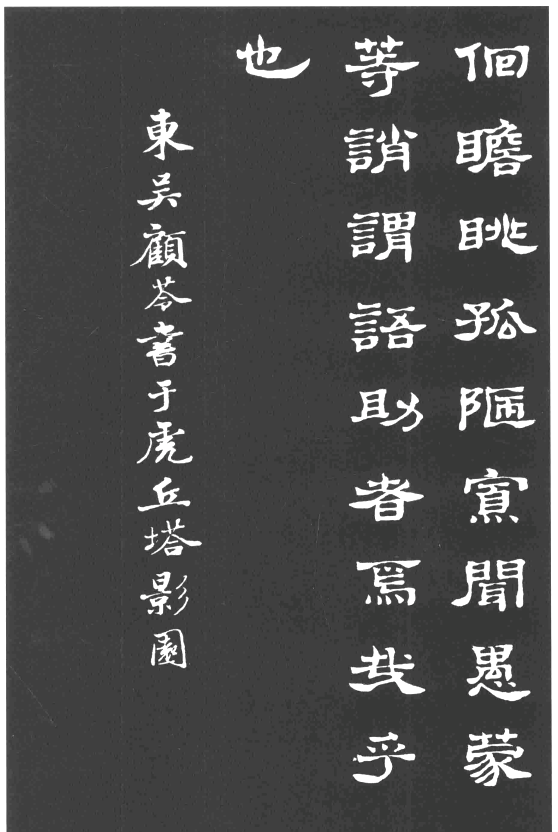 佪瞻眺孤陋寡聞愚蒙
等誚謂語助者焉哉乎
也
東吳顧苓書于虎丘塔影園